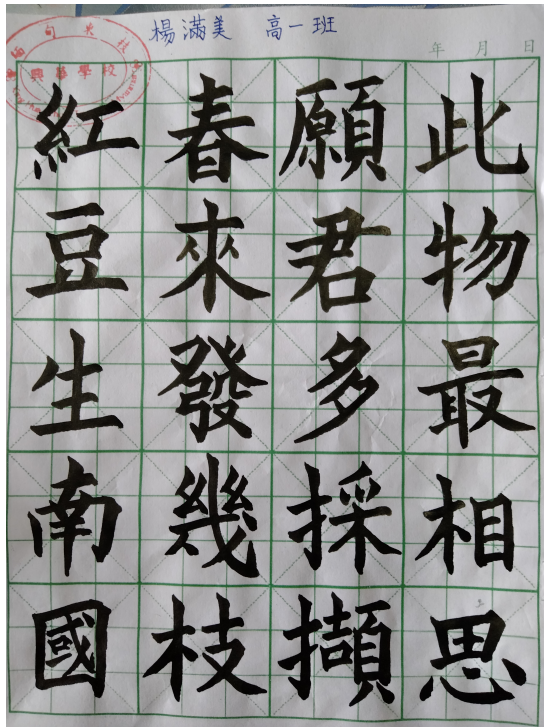 楊滿美 高一班
年 月 日
興華學校
紅豆生南國
春來發幾枝
願君多採擷
此物最相思